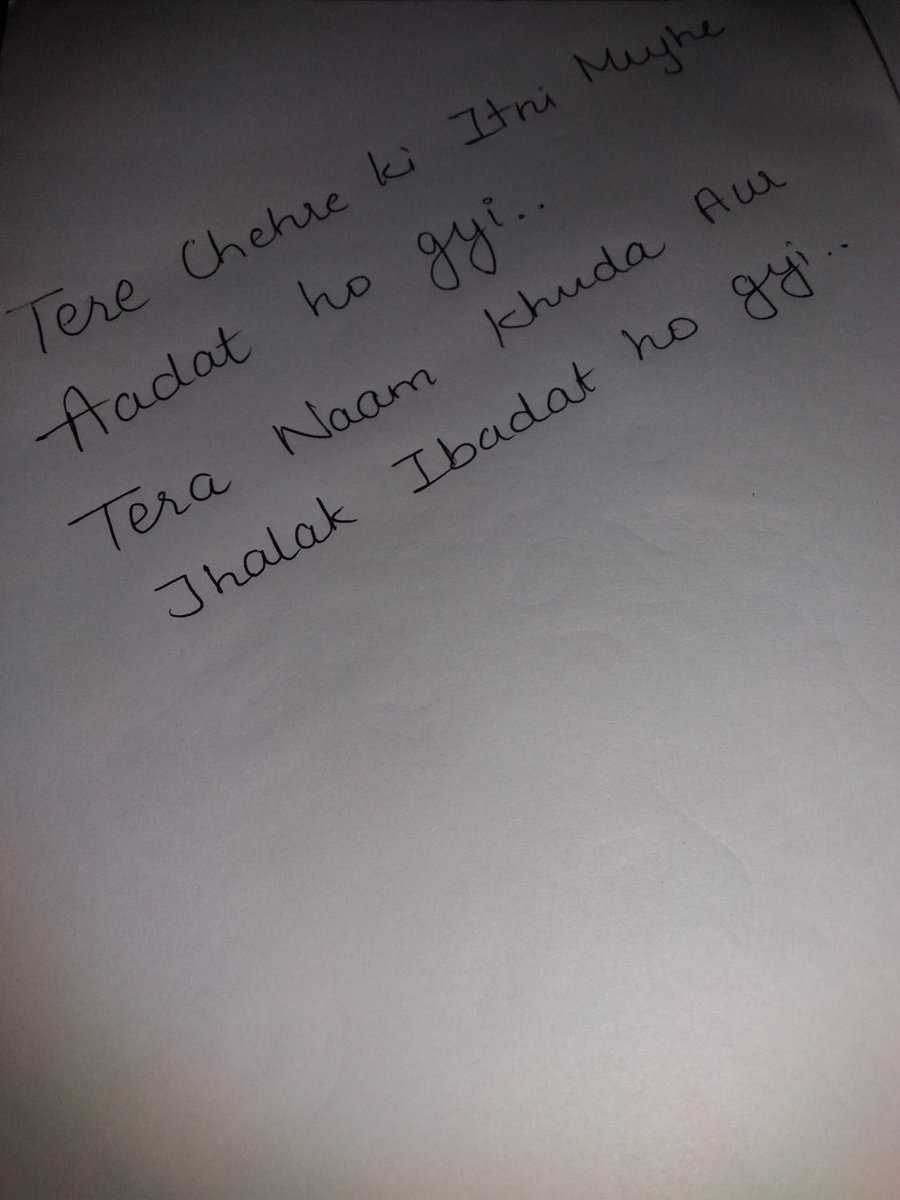 Tere Chehre ki Itni Mujhe
Aadat ho gyi..
Tera Naam Khuda Aur
Jhalak Ibadat ho gyi..